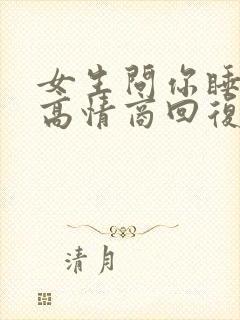 女生問你睡
高情商回復
清月